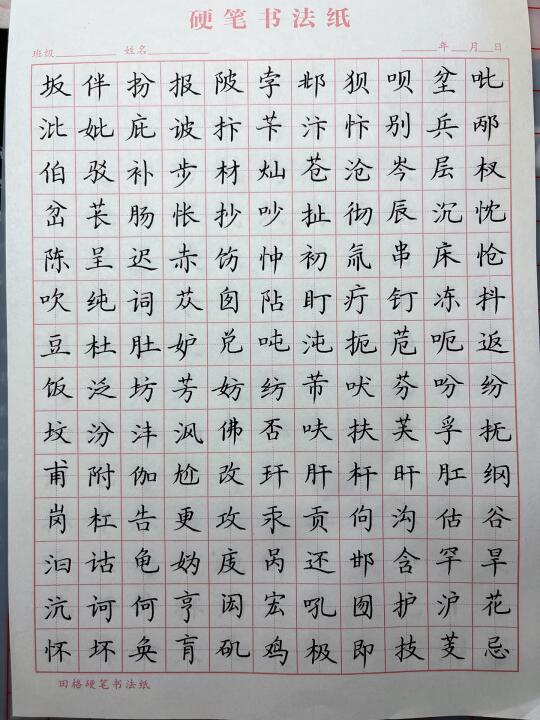 硬笔书法纸
班级 姓名 年 月 日
坂伴扮报陂孛邶狈呗坌吡
沘妣庇诐抃苄汴忭别兵邴
伯驳补步材灿苍沧岑层杈
岔苌肠怅抄吵扯彻辰沉忱
陈呈迟赤饬忡初氚串床怆
吹纯词苁囱阽盯疔钉冻抖
豆杜肚妒兑吨沌扼苊呃返
饭泛坊芳妨纺芾吠芬吩纷
坟汾沣沨佛否呋扶芙孚抚
甫附伽尬改玕肝杆旰肛纲
岗杠告更攻汞贡佝沟估谷
汩诂龟妫庋呙还邯含罕旱
沆诃何亨闳宏吼囫护沪花
怀坏奂肓矶鸡极即技芰忌
田格硬笔书法纸